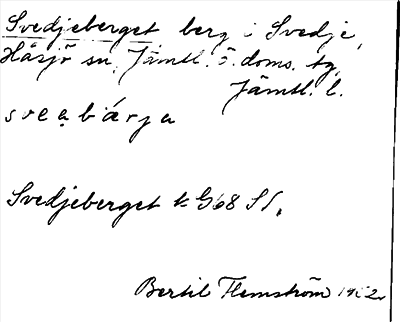 Svedjeberget berg i Svedje,
Håsjö sn. Jämtl. ö. doms. tg.
Jämtl. l.
sveabärja
Svedjeberget k G68 SV.
Bertil Flemström